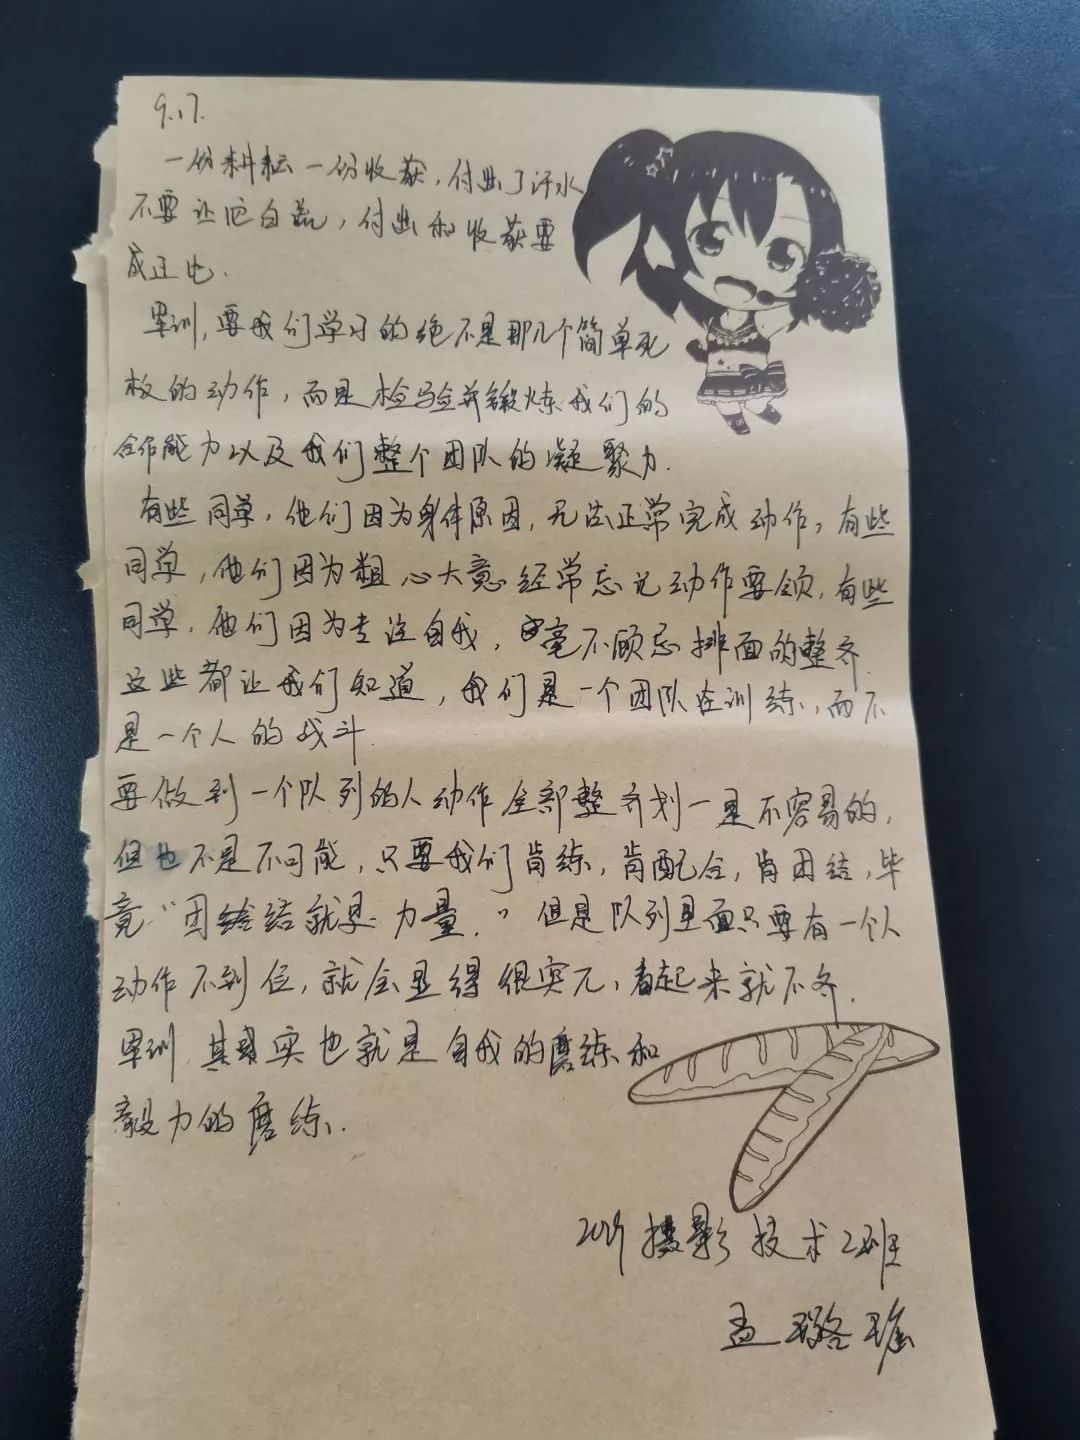 9.17.
一份耕耘一份收获，付出了汗水
不要让它白流，付出和收获要
成正比.
军训，要我们学习的绝不是那几个简单死
板的动作，而是检验并锻炼我们的
合作能力以及我们整个团队的凝聚力.
有些同学，他们因为身体原因，无法正常完成动作，有些
同学，他们因为粗心大意经常忘记动作要领，有些
同学，他们因为专注自我，毫不顾忌排面的整齐.
这些都让我们知道，我们是一个团队在训练，而不
是一个人的战斗.
要做到一个队列的人动作全部整齐划一是不容易的，
但也不是不可能，只要我们肯练，肯配合，肯团结，毕
竟“团结就是力量.”但是队列里面只要有一个人
动作不到位，就会显得很突兀，看起来就不齐.
军训，其实也就是自我的磨练和
毅力的磨练.
2019摄影技术2班
孟璐瑶